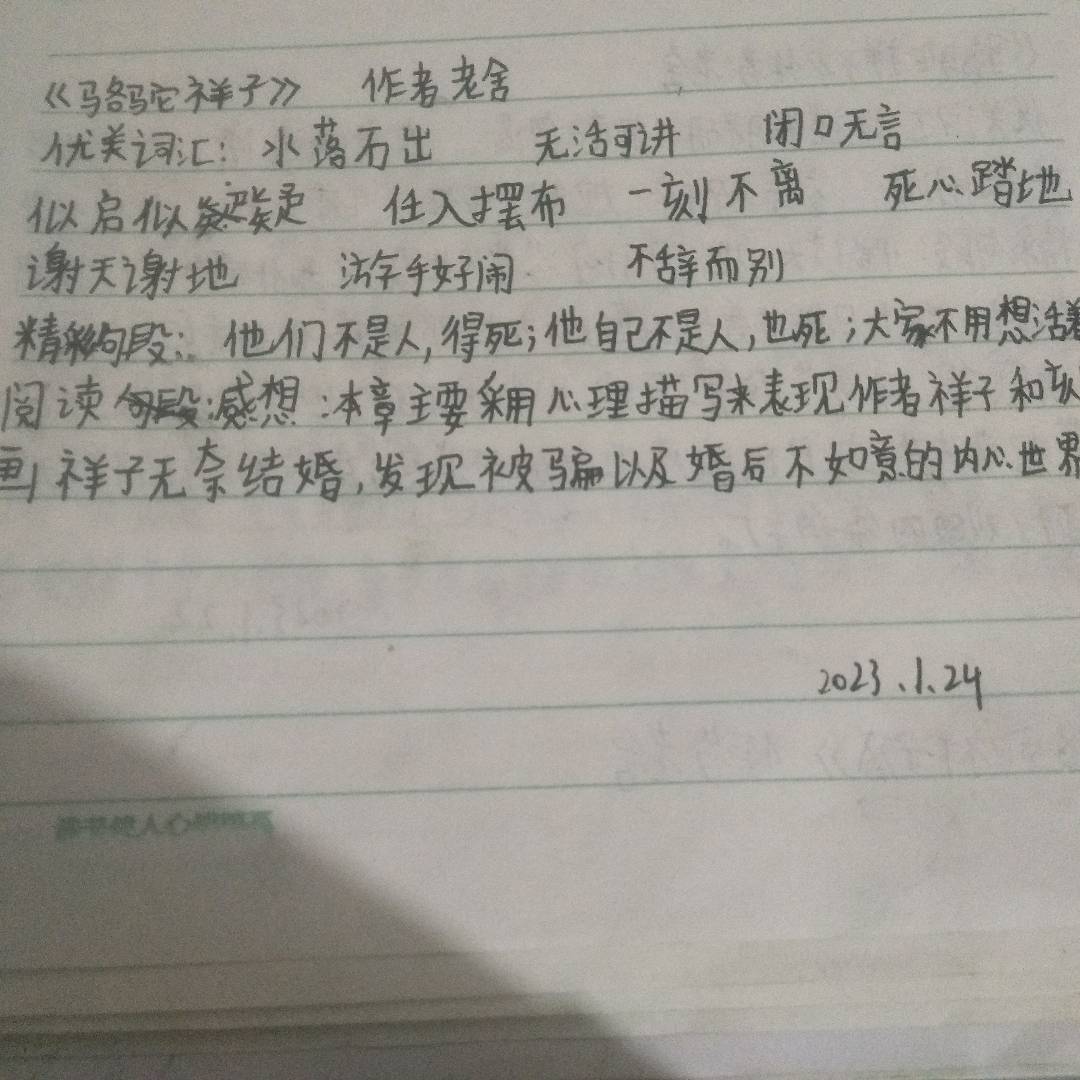 《骆驼祥子》 作者老舍
优美词汇：水落石出 无活可讲 闭口无言
似启似疑 任入摆布 一刻不离 死心踏地
谢天谢地 游手好闹 不辞而别
精彩句段：他们不是人，得死；他自己不是人，也死；大家不用想活着
阅读感想：本章主要采用心理描写来表现作者祥子和刻
画祥子无奈结婚，发现被骗以及婚后不如意的内心世界
2023.1.24